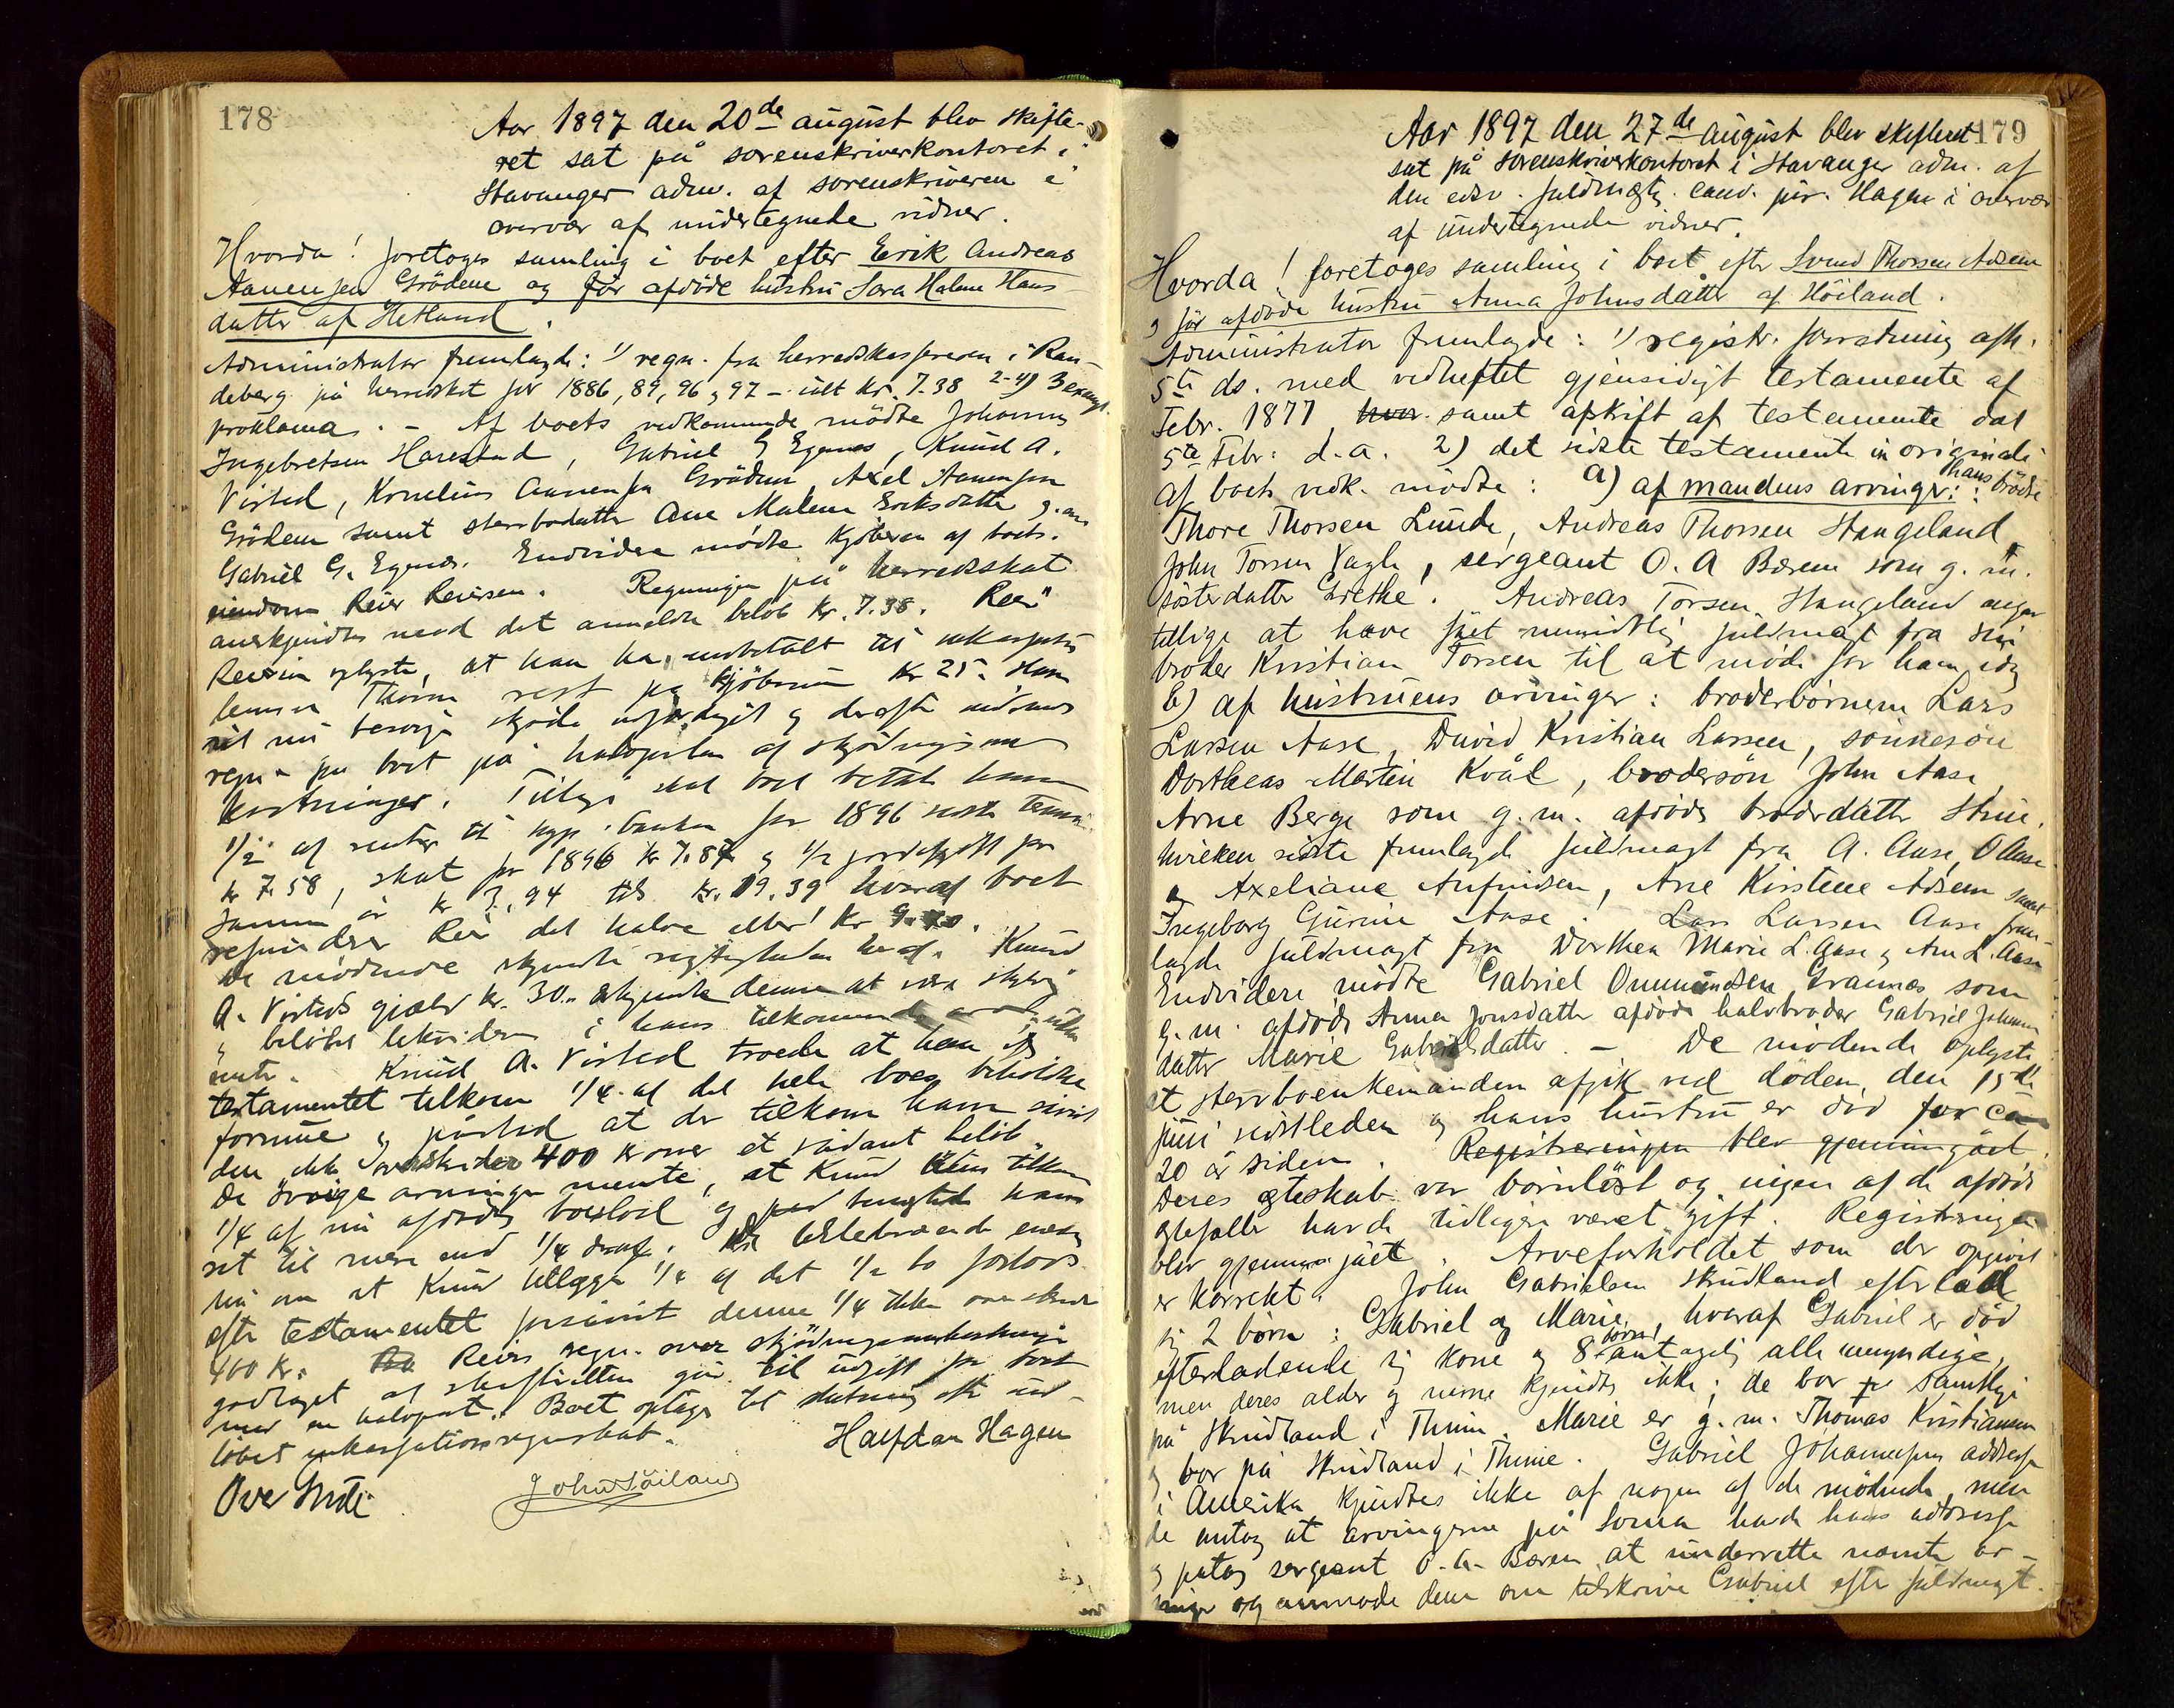 178
Aar 1897 den 20de august blev skifte-
ret sat på sorenskriverkontoret i
Stavanger adm. af sorenskriveren i
overvær af undertegnede vidner.
Hvorda! foretoges samling i boet efter Eerik Andreas
Aanensen Grödem og før afdöde hustru Sara Malene Hans
datter af Hetland.
Administrator fremlagde: 1) regn. fra herredskassereren i Ran-
deberg på herredskat for 1886, 89, 96 og 97 - ialt kr. 7.38 2-4) 3 expl.
proklama. - Af boets vedkommende mödte Johannes
Ingebretsen Harestad, Gabriel G Egenes, Knud A.
Visted, Kornelius Aanensen Grödem, Axel Aanensen
Grödem samt sterbodatter Ane Malene Eeriksdatter g. m.
Gabriel G. Egenes. Endvidere mödte kjöberen af boets
eiendom Reier Reiersen. Regningen på herredsskat
anerkjendtes med det anmeldte belöb kr. 7.38. Reier
Reiersen oplyste, at han har indbetalt til inkassator
Thorsen rest på kjöbesum kr 25. Han
vil nu besörge sköde udfærdiget og derefter indsende
regn. for boet på halvparten af skjödningsom
kostninger. Tillige skal boet betale ham
1/2 af renter til hyp. banken for 1896 sidste termin
kr 7.58, skat for 1896 kr 7.87 og 1/2 jordafgift for
samme år kr 3.94 tils kr. 19.39 hvoraf boet
refunderer Reier det halve eller kr 9.70.
De mödende erkjendte rigtigheden heraf. Knud
A. Visteds gjæld kr. 30.- erkjendte denne at være skyldig
og belöbet likvideres i hans tilkommende arv uden
rente. Knud A. Visted troede at han efter
testamentet tilkom 1/4 af det hele boes beholdne
formue og påstod at der tilkom ham såvidt
den ikke overskrider 400 kroner et sådant belöb.
De övrige arvinger mente, at Knud kun tilkom
1/4 af nu afdödes boeslod og
ret til mere end 1/4 deraf. De tilstedeværende enedes
nu om at Knud tillægges 1/4 af det 1/2 bo forlods
efter testamentet forsåvidt denne 1/4 ikke overskrider
400 kr. Reiers regn. over skjödningsomkostninger
godtaget af skifteretten går til udgift for boet
med en halvpart. Boet optages til slutning efter ind-
löbet inkassationsregnskab.
Halfdan Hagen
Ove
John Söiland
179
Aar 1897 den 27de august blev skifteret
sat på sorenskriverkontoret i Stavanger adm. af
den edsv. fuldmægtig cand. jur. Hagen i overvær
af undertegnede vidner.
Hvorda! foretoges samling i boet efter Svend Thorsen Adsem
og før afdöde hustru Anna Johnsdatter af Höiland.
Administrator fremlagde: 1) registr. forretning afh.
5te ds. med vedheftet gjensidigt testamente af
Febr. 1877 hvor samt afskrift af testamente dat
5te Febr. d.a. 2) det sidste testamente in originali
Af boets vedk. mödte: a) af mandens arvinger: hans brödre
Thore Thorsen Lunde, Andreas Thorsen Stangeland
John Torsen Vagle, sergeant O. A Bærem som g. m.
sösterdatter Grethe. Andreas Torsen Stangeland angav
tillige at have fået mundtlig fuldmagt fra sin
broder Kristian Torsen til at möde for ham idag
b) af hustruens arvinger: broderbörnene Lars
Larsen Aase, David Kristian Larsen, sönnesön
Dortheas Martin Kvål, brodersön John Aase
Arne Berge som g. m. afdöde broderdatter Stine,
hvilken sidste fremlagde fuldmagt fra A. Aase, O Aase
og Axeliane Anfindsen, Ane Kirstene Adsem samt
Ingeborg Gurine Aase. Lars Larsen Aase frem-
lagde fuldmagt fra Dorthea Marie L. Aase og Ane L. Aase
Endvidere mödte Gabriel Ommundsen Grannes som
g. m. afdöde Anna Jonsdatter afdöde halvbroder Gabriel Johnsens
datter Marie Gabrielsdatter. - De mödende oplyste
at sterboenkemanden afgik ved döden den 15de
juni sidstleden og hans hustru er död for ca
20 år siden. Registreringen blev gjennemgået.
Deres ægteskab var barnlöst og ingen af de afdöde
ægtefæller havde tidligere været gift. Registreringen
blev gjennemgået. Arveforholdet som der opgivet
er korrekt. John Gabrielsen Skrudland efterlod
sig 2 börn: Gabriel og Marie, hvoraf Gabriel er död
efterladende sig kone og 8 börn antagelig alle umyndige,
men deres alder og navne kjendtes ikke; de bor samtlige
på Skrudland i Thime. Marie er g. m. Thomas Kristiansen
og bor på Skrudland i Thime. Gabriel Johannesens addresse
i Amerika kjendtes ikke af nogen af de mödende, men
de antog at arvingerne på Soma havde hans addresse
og påtog sergeant O. A. Bærem at underrette nævnte ar-
vinger og anmode dem om tilskrive Gabriel efter fuldmagt.